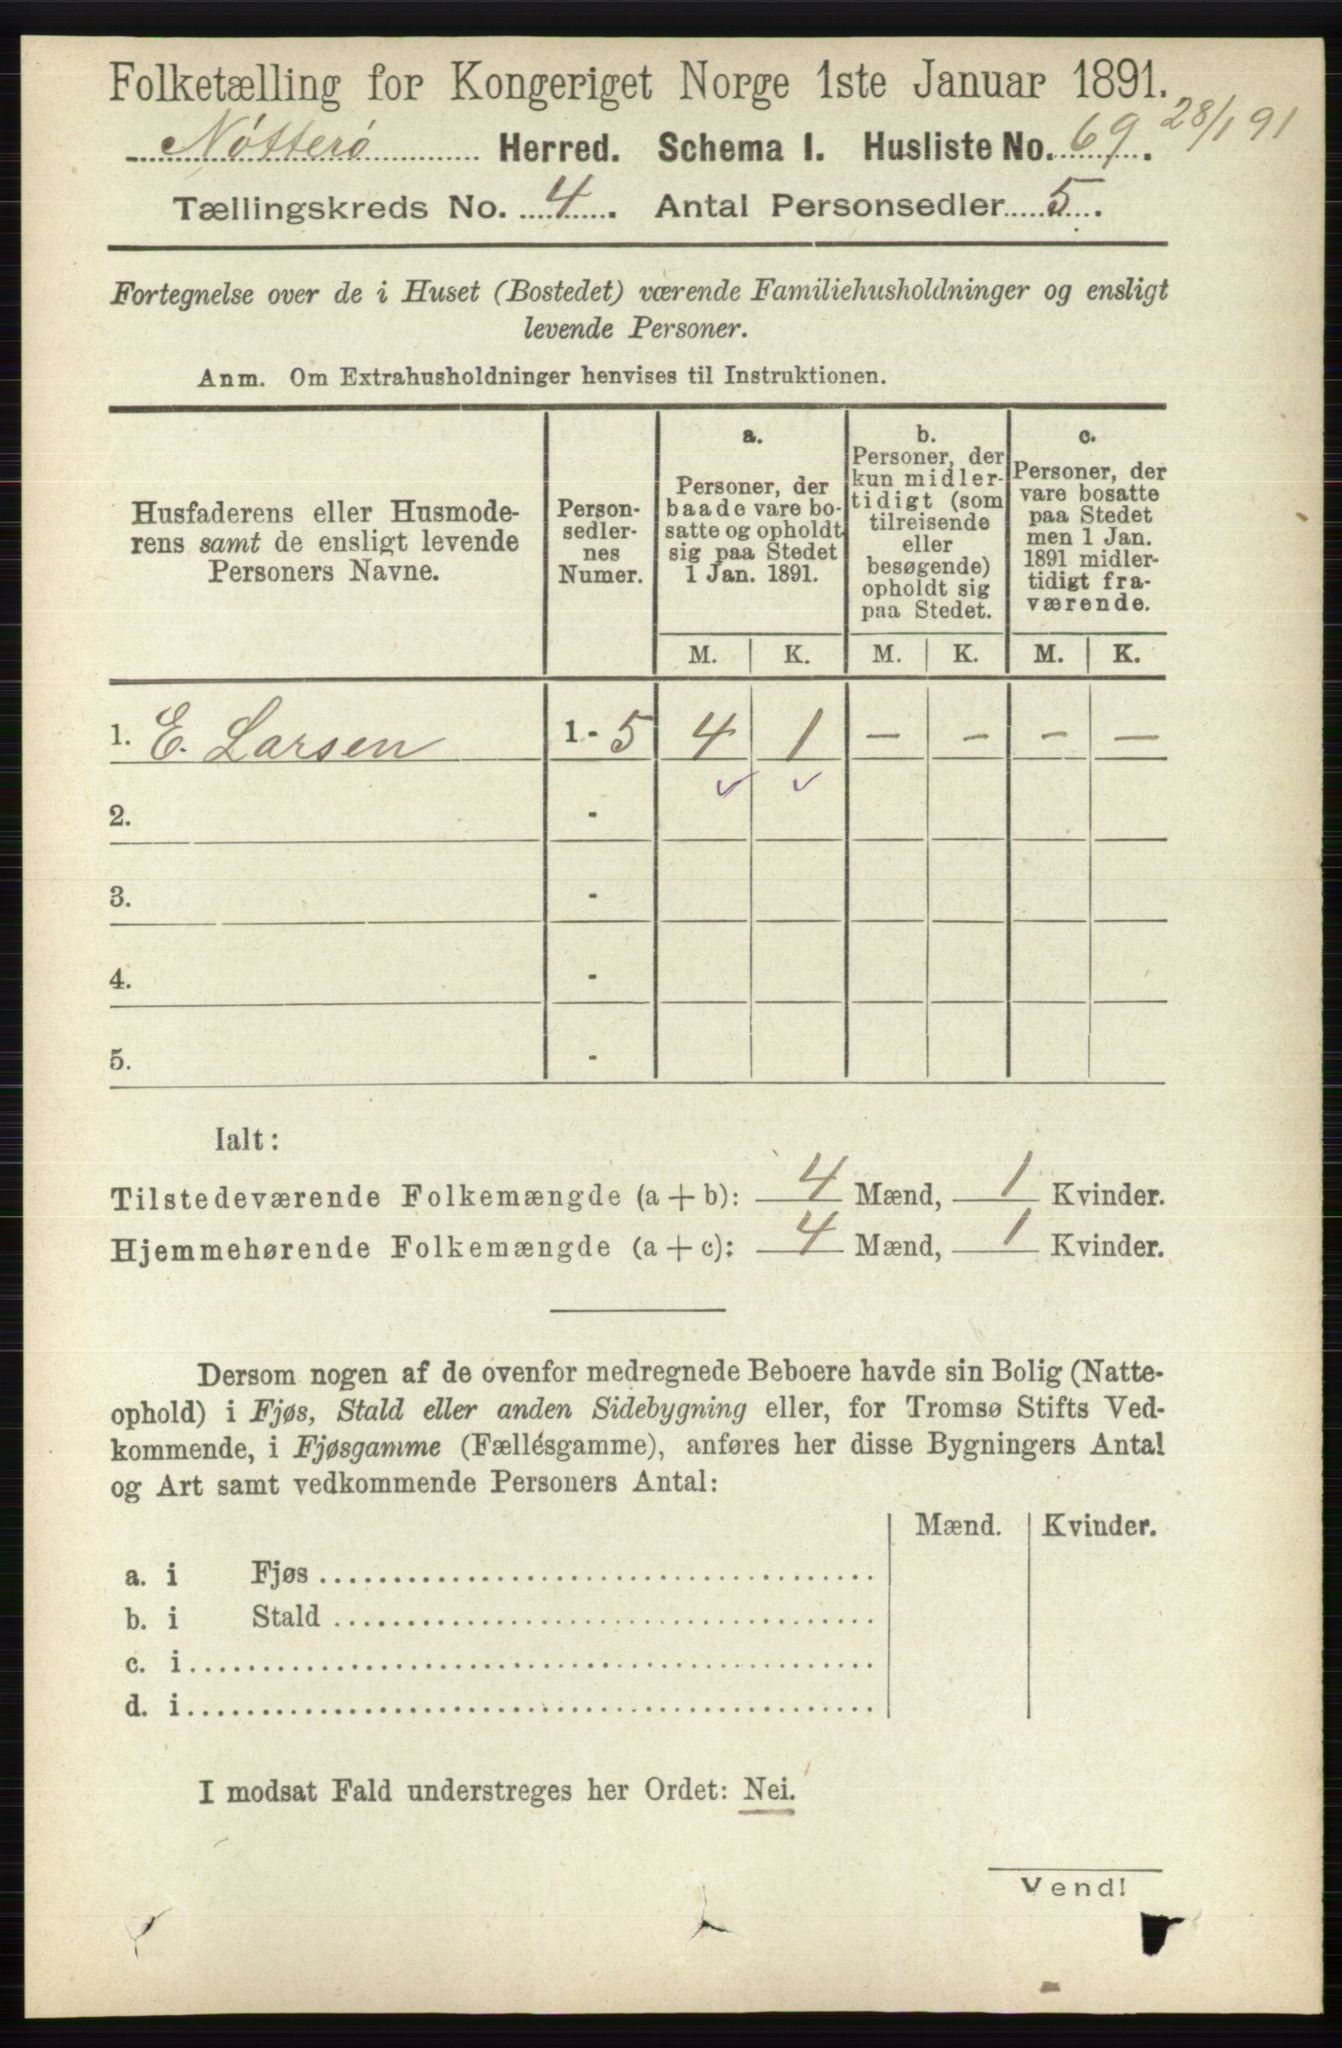 Folketælling for Kongeriget Norge 1ste Januar 1891.
28/1 91
Nøtterø Herred. Schema I. Husliste No. 69.
Tællingskreds No. 4. Antal Personsedler 5.
Fortegnelse over de i Huset (Bostedet) værende Familiehusholdninger og ensligt
levende Personer.
Anm. Om Extrahusholdninger henvises til Instruktionen.
Husfaderens eller Husmode-
rens samt de ensligt levende
Personers Navne.
Person-
sedler-
nes
Numer.
a.
Personer, der
baade vare bo-
satte og opholdt
sig paa Stedet
1 Jan. 1891.
b.
Personer, der
kun midler-
tidigt (som
tilreisende
eller
besøgende)
opholdt sig
paa Stedet.
c.
Personer, der
vare bosatte
paa Stedet
men 1 Jan.
1891 midler-
tidigt fra-
værende.
M. K. M. K. M. K.
1. E. Larsen 1 - 5 4 1 - - - -
2. -
3. -
4. -
5. -
Ialt:
Tilstedeværende Folkemængde (a + b): 4 Mænd, 1 Kvinder.
Hjemmehørende Folkemængde (a + c): 4 Mænd, 1 Kvinder.
Dersom nogen af de ovenfor medregnede Beboere havde sin Bolig (Natte-
ophold) i Fjøs, Stald eller anden Sidebygning eller, for Tromsø Stifts Ved-
kommende, i Fjøsgamme (Fællesgamme), anføres her disse Bygningers Antal
og Art samt vedkommende Personers Antal:
Mænd. Kvinder.
a. i Fjøs
b. i Stald
c. i
d. i
I modsat Fald understreges her Ordet: Nei.
Vend!